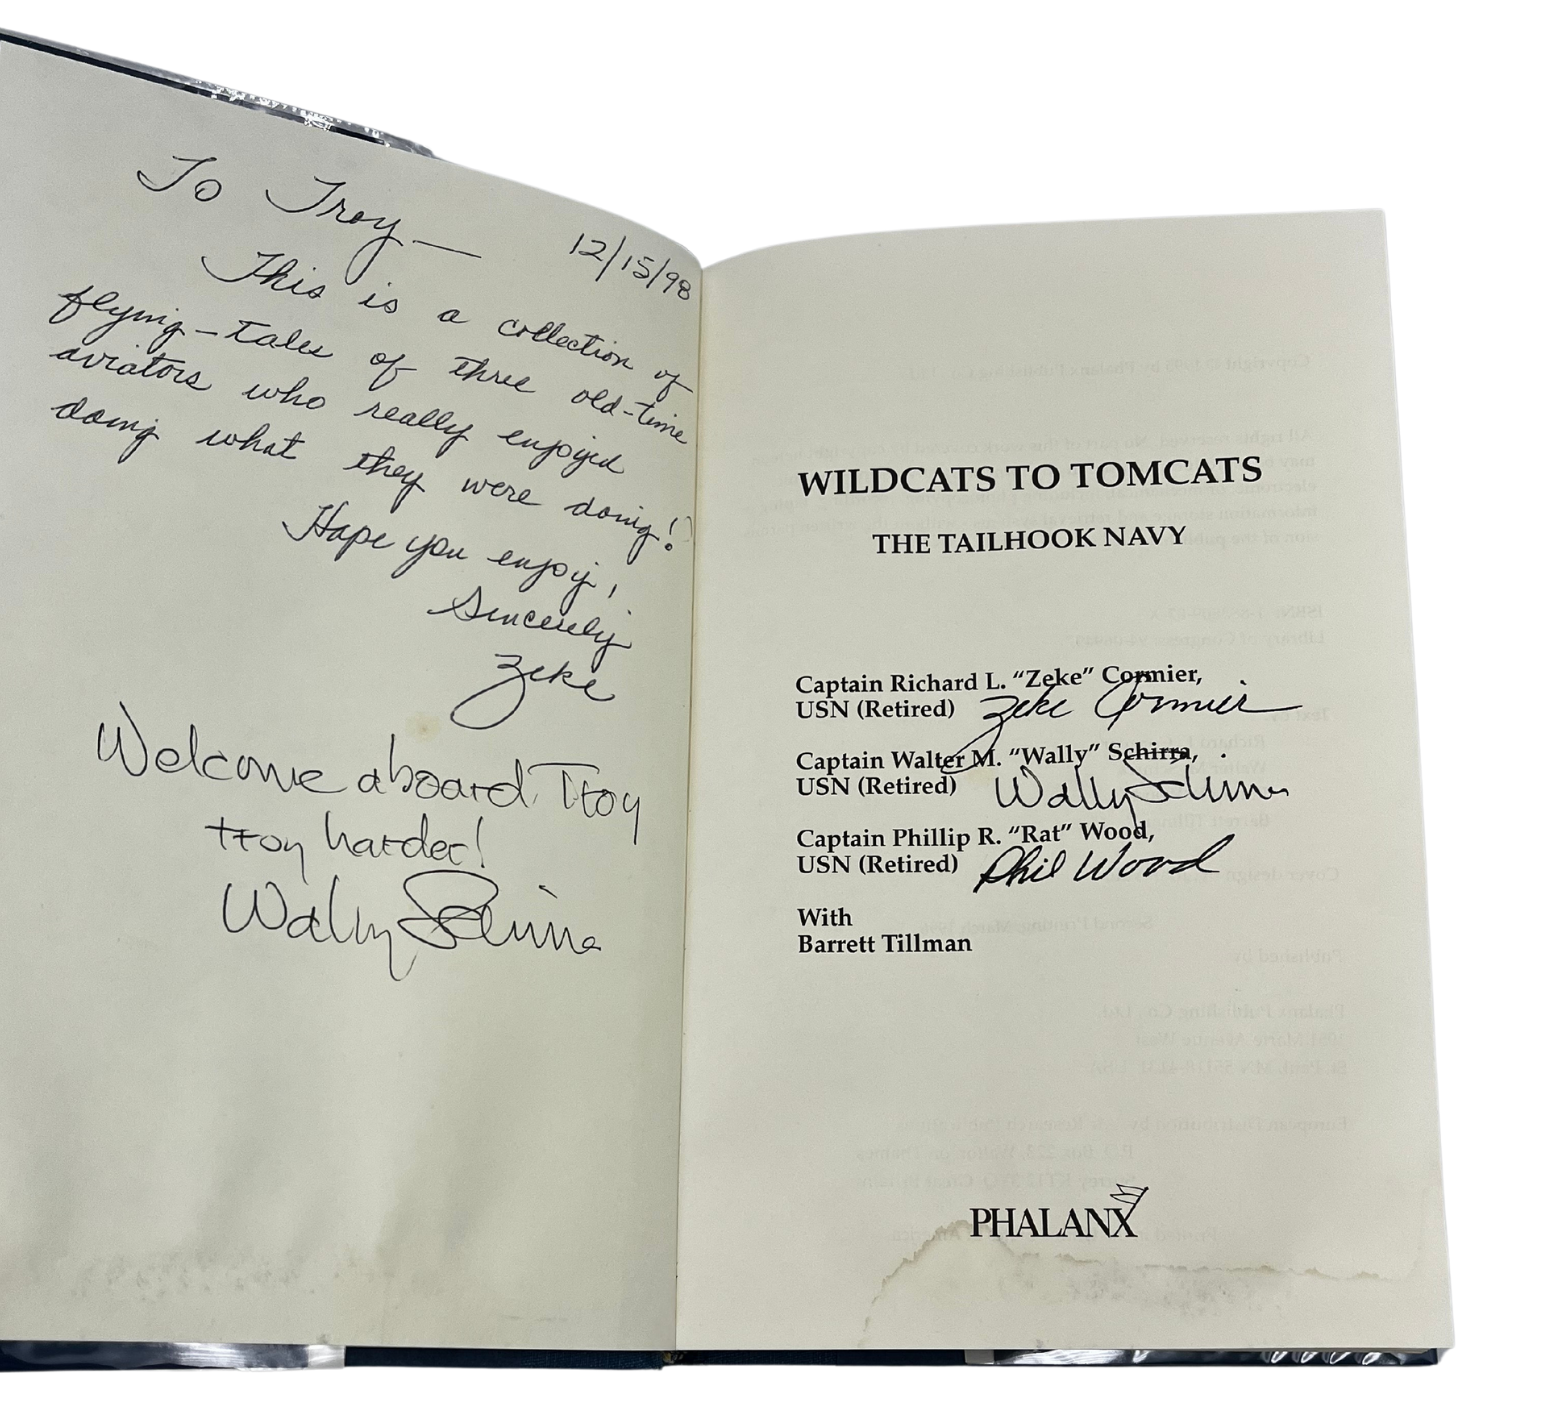 To Troy—
12/15/98
This is a collection of
flying-tales of three old-time
aviators who really enjoyed
doing what they were doing!
Hope you enjoy!
Sincerely
Zeke
Welcome aboard Troy
troy harder!
Wally Schirra
WILDCATS TO TOMCATS
THE TAILHOOK NAVY
Captain Richard L. “Zeke” Cormier,
USN (Retired) Zeke Cormier
Captain Walter M. “Wally” Schirra,
USN (Retired) Wally Schirra
Captain Phillip R. “Rat” Wood,
USN (Retired) Phil Wood
With
Barrett Tillman
PHALANX